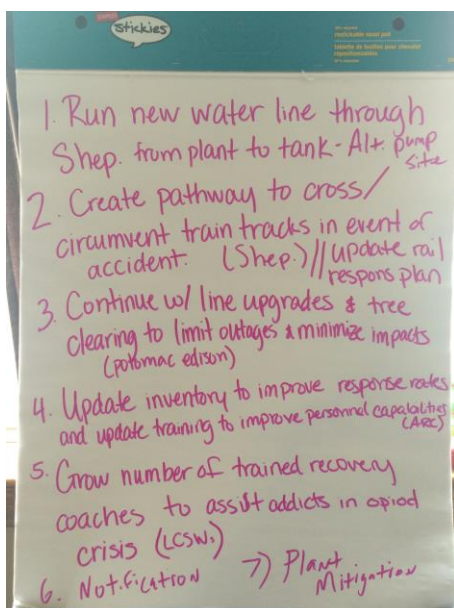 stickies
restickable easel pad
tablette de feuilles pour chevalet
repositionnables
1. Run new water line through
Shep. from plant to tank - Alt. pump
site
2. Create pathway to cross/
circumvent train tracks in event of
accident. (Shep.) // update rail
respons plan
3. Continue w/ line upgrades & tree
clearing to limit outages & minimize impacts
(potomac edison)
4. Update inventory to improve response rates
and update training to improve personnel capabilities
(ARC)
5. Grow number of trained recovery
coaches to assist addicts in opiod
crisis (LCSW.)
6. Notification 7) Plant
Mitigation